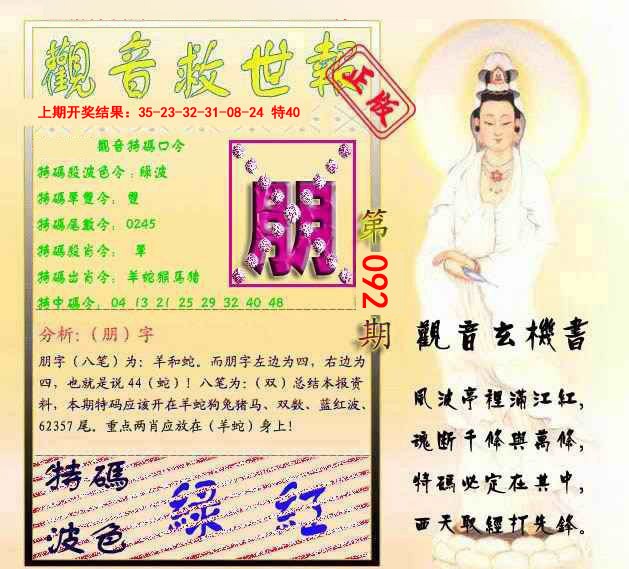 觀音救世報
正版
上期开奖结果：35-23-32-31-08-24 特40
觀音特碼口令
特碼段波色令：綠波
特碼單雙令： 雙
特碼尾數令： 0245
特碼段肖令： 單
特碼出肖令：羊蛇猴馬豬
特中碼令： 04 13 21 25 29 32 40 48
朋
第092期
分析:（朋）字
朋字（八笔）为：羊和蛇。而朋字左边为四，右边为
四，也就是说 44（蛇）！八笔为：（双）总结本报资
料，本期特码应该开在羊蛇狗兔猪马、双数、蓝红波、
62357 尾。重点两肖应放在（羊蛇）身上！
特碼
波色
綠 紅
觀音玄機書
風波亭裡滿江紅，
魂断千條與萬條，
特碼必定在其中，
西天取經打先鋒。